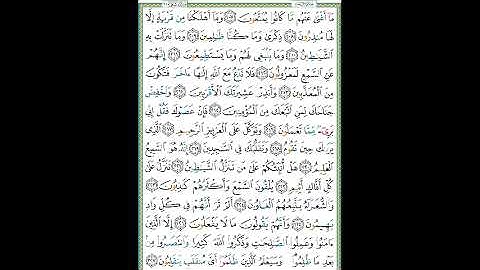 مَآ أَغۡنَىٰ عَنۡهُم مَّا كَانُواْ يُمَتَّعُونَ ٢٠٧ وَمَآ أَهۡلَكۡنَا مِن قَرۡيَةٍ إِلَّا
لَهَا مُنذِرُونَ ٢٠٨ ذِكۡرَىٰ وَمَا كُنَّا ظَٰلِمِينَ ٢٠٩ وَمَا تَنَزَّلَتۡ بِهِ
ٱلشَّيَٰطِينُ ٢١٠ وَمَا يَنۢبَغِي لَهُمۡ وَمَا يَسۡتَطِيعُونَ ٢١١ إِنَّهُمۡ
عَنِ ٱلسَّمۡعِ لَمَعۡزُولُونَ ٢١٢ فَلَا تَدۡعُ مَعَ ٱللَّهِ إِلَٰهًا ءَاخَرَ فَتَكُونَ
مِنَ ٱلۡمُعَذَّبِينَ ٢١٣ وَأَنذِرۡ عَشِيرَتَكَ ٱلۡأَقۡرَبِينَ ٢١٤ وَٱخۡفِضۡ
جَنَاحَكَ لِمَنِ ٱتَّبَعَكَ مِنَ ٱلۡمُؤۡمِنِينَ ٢١٥ فَإِنۡ عَصَوۡكَ فَقُلۡ إِنِّي
بَرِيٓءٞ مِّمَّا تَعۡمَلُونَ ٢١٦ وَتَوَكَّلۡ عَلَى ٱلۡعَزِيزِ ٱلرَّحِيمِ ٢١٧ ٱلَّذِي
يَرَىٰكَ حِينَ تَقُومُ ٢١٨ وَتَقَلُّبَكَ فِي ٱلسَّٰجِدِينَ ٢١٩ إِنَّهُۥ هُوَ ٱلسَّمِيعُ
ٱلۡعَلِيمُ ٢٢٠ هَلۡ أُنَبِّئُكُمۡ عَلَىٰ مَن تَنَزَّلُ ٱلشَّيَٰطِينُ ٢٢١ تَنَزَّلُ عَلَىٰ
كُلِّ أَفَّاكٍ أَثِيمٖ ٢٢٢ يُلۡقُونَ ٱلسَّمۡعَ وَأَكۡثَرُهُمۡ كَٰذِبُونَ ٢٢٣
وَٱلشُّعَرَآءُ يَتَّبِعُهُمُ ٱلۡغَاوُۥنَ ٢٢٤ أَلَمۡ تَرَ أَنَّهُمۡ فِي كُلِّ وَادٖ
يَهِيمُونَ ٢٢٥ وَأَنَّهُمۡ يَقُولُونَ مَا لَا يَفۡعَلُونَ ٢٢٦ إِلَّا ٱلَّذِينَ
ءَامَنُواْ وَعَمِلُواْ ٱلصَّٰلِحَٰتِ وَذَكَرُواْ ٱللَّهَ كَثِيرٗا وَٱنتَصَرُواْ مِنۢ
بَعۡدِ مَا ظُلِمُواْ وَسَيَعۡلَمُ ٱلَّذِينَ ظَلَمُوٓاْ أَيَّ مُنقَلَبٖ يَنقَلِبُونَ ٢٢٧